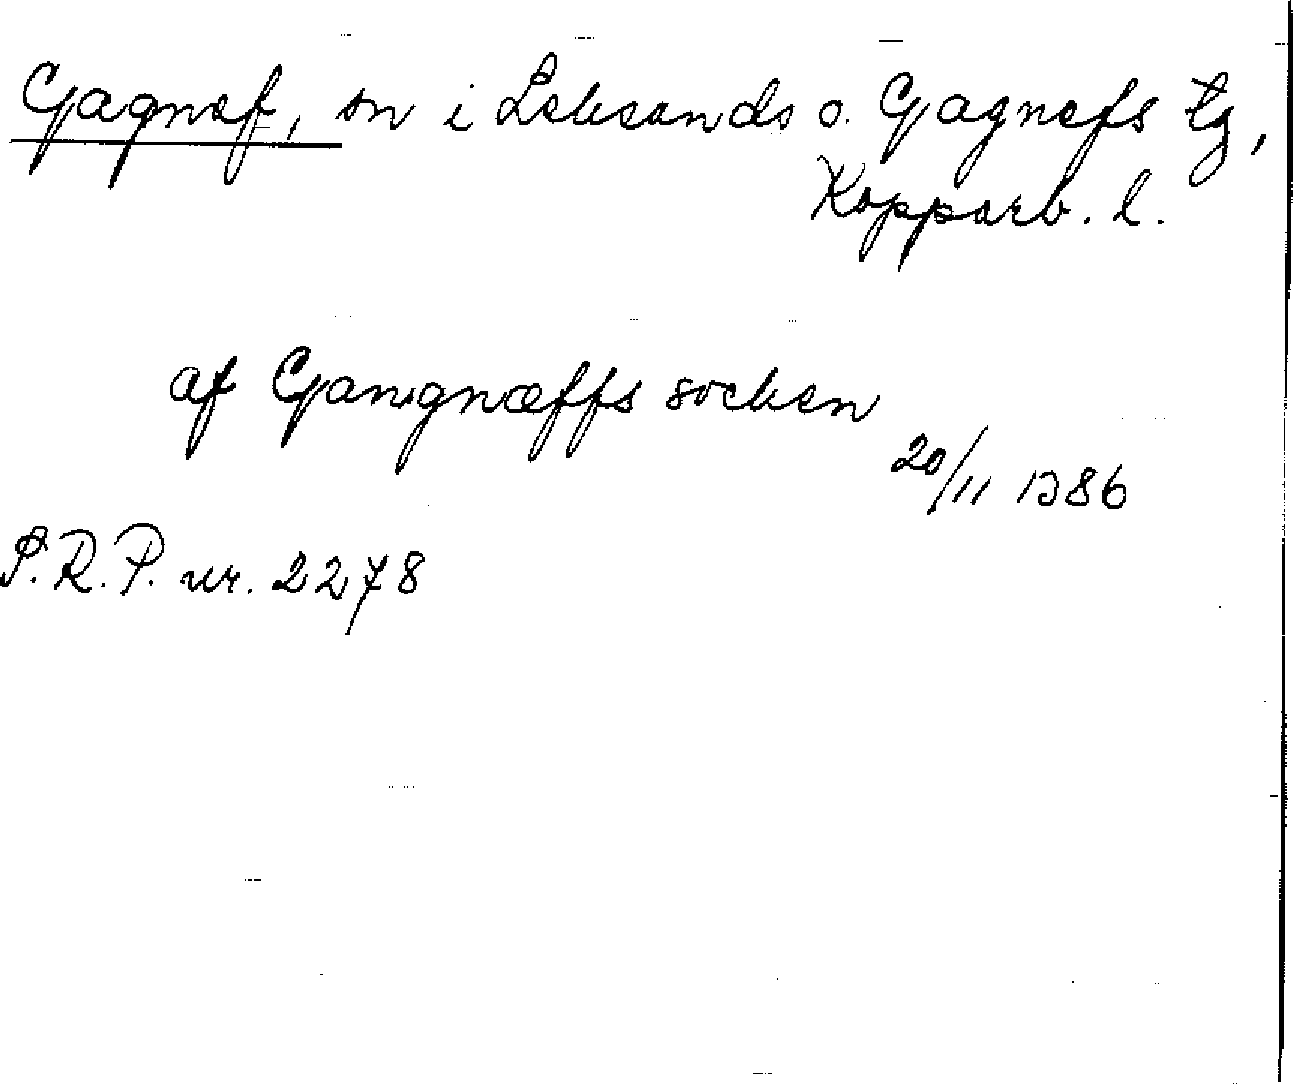 Gagnef, sn i Leksands o. Gagnefs tg,
Kopparb. l.
af Gangnæffs socken
20/11 1386
S.R.P. nr. 2278